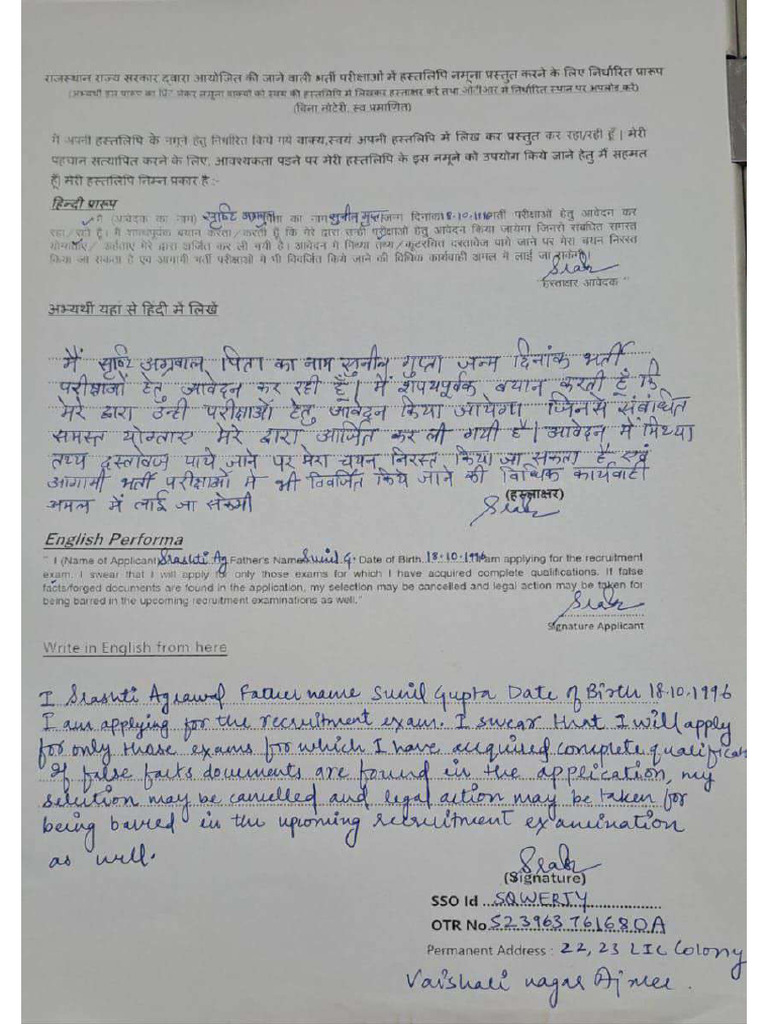 राजस्थान राज्य सरकार द्वारा आयोजित की जाने वाली भर्ती परीक्षाओं में हस्तलिपि नमूना प्रस्तुत करने के लिए निर्धारित प्रारूप
(अभ्यर्थी इस प्रारूप का प्रिंट लेकर नमूना वाक्यों को स्वयं की हस्तलिपि में लिखकर हस्ताक्षर करें तथा ओटीआर में निर्धारित स्थान पर अपलोड करें)
(बिना नोटेरी, स्व प्रमाणित)
मैं अपनी हस्तलिपि के नमूने हेतु निर्धारित किये गये वाक्य,स्वयं अपनी हस्तलिपि में लिख कर प्रस्तुत कर रहा/रही हूँ | मेरी
पहचान सत्यापित करने के लिए, आवश्यकता पडने पर मेरी हस्तलिपि के इस नमूने को उपयोग किये जाने हेतु मैं सहमत
हूँ| मेरी हस्तलिपि निम्न प्रकार है :-
हिन्दी प्रारूप
मैं (आवेदक का नाम) सृष्टि अग्रवाल पिता का नाम सुनील गुप्ता जन्म दिनांक 18.10.1996 भर्ती परीक्षाओं हेतु आवेदन कर
रहा/रही हूँ| मैं शपथपूर्वक बयान करता/करती हूँ कि मेरे द्वारा उन्ही परीक्षाओं हेतु आवेदन किया जायेगा जिनसे संबंधित समस्त
योग्यताएं/ अर्हताए मेरे द्वारा अर्जित कर ली गयी है। आवेदन में मिथ्या तथ्य/कूटरचित दस्तावेज पाये जाने पर मेरा चयन निरस्त
किया जा सकता है एवं आगामी भर्ती परीक्षाओं मे भी विवर्जित किये जाने की विधिक कार्यवाही अमल में लाई जा सकेगी"
Srah
"हस्ताक्षर आवेदक "
अभ्यर्थी यहां से हिंदी में लिखें
मैं सृष्टि अग्रवाल पिता का नाम सुनील गुप्ता जन्म दिनांक भर्ती
परीक्षाओं हेतु आवेदन कर रही हूँ | मैं शपथपूर्वक बयान करती हूँ कि
मेरे द्वारा उन्ही परीक्षाओं हेतु आवेदन किया जायेगा जिनसे संबंधित
समस्त योग्ताए मेरे द्वारा आर्जित कर ली गयी है | आवेदन में मिथ्या
तथ्य दस्तावेज पाये जाने पर मेरा चयन निरस्त किया जा सकता है एवं
आगामी भर्ती परीक्षाओं मे भी विवर्जित किये जाने की विधिक कार्यवाही
अमल में लाई जा सकेगी
(हस्ताक्षर)
Srah
English Performa
" I (Name of Applicant) Srashti Ag Father's Name Sunil G. Date of Birth 18.10.1996 am applying for the recruitment
exam. I swear that I will apply for only those exams for which I have acquired complete qualifications. If false
facts/forged documents are found in the application, my selection may be cancelled and legal action may be taken for
being barred in the upcoming recruitment examinations as well."
Srah
Signature Applicant
Write in English from here
I Srashti Agrawal Father name Sunil Gupta Date of Birth 18.10.1996
I am applying for the recruitment exam. I swear that I will apply
for only those exams for which I have acquired complete qualificat
If false facts documents are found in the application, my
selection may be cancelled and legal action may be taken for
being barred in the upcoming recruitment examination
as well.
Srah
(Signature)
SSO Id SQWERTY
OTR No S23963761680A
Permanent Address : 22, 23 LIC Colony
Vaishali nagar Ajmer.